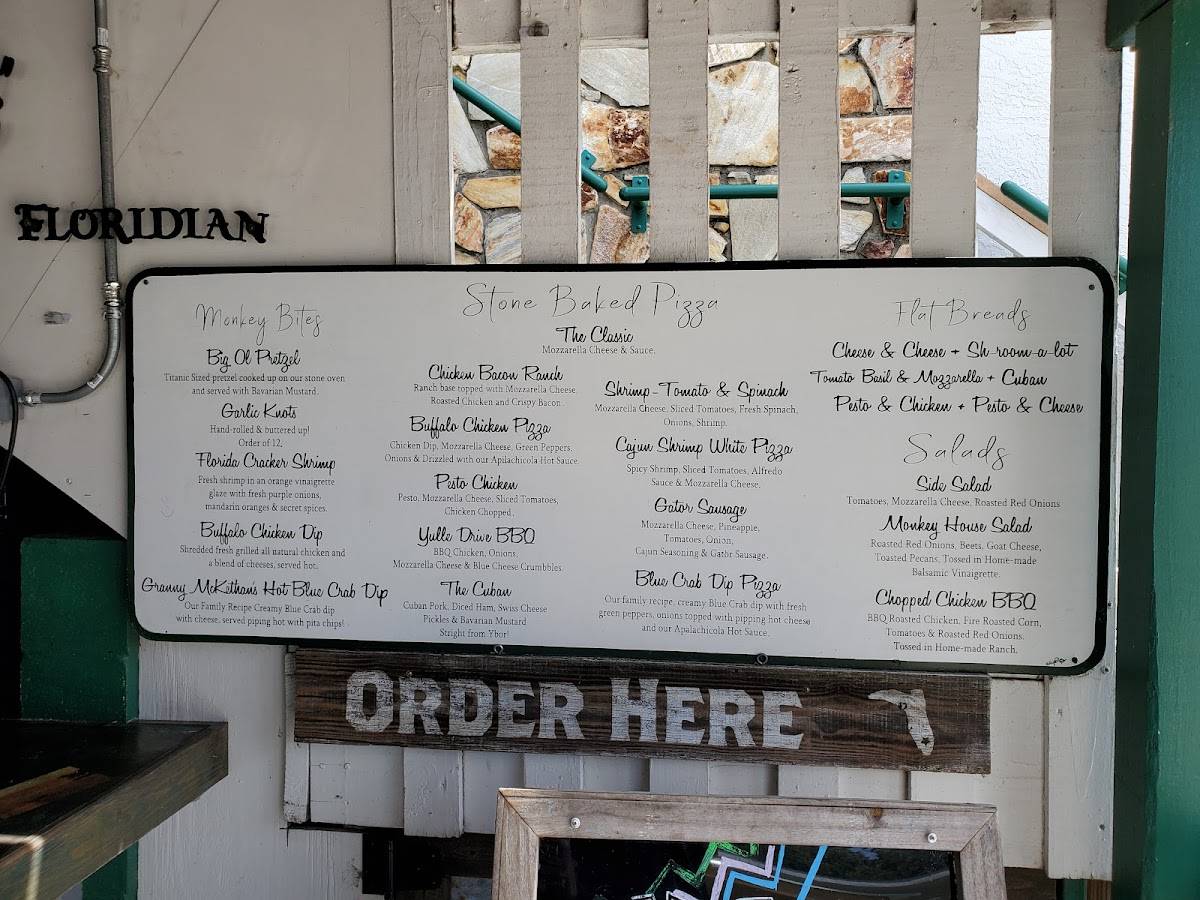 FLORIDIAN
Monkey Bites
Big Ol Pretzel
Titanic Sized pretzel cooked up on our stone oven
and served with Bavarian Mustard.
Garlic Knots
Hand-rolled & buttered up!
Order of 12,
Florida Cracker Shrimp
Fresh shrimp in an orange vinaigrette
glaze with fresh purple onions,
mandarin oranges & secret spices.
Buffalo Chicken Dip
Shredded fresh grilled all natural chicken and
a blend of cheeses, served hot.
Granny McKethan's Hot Blue Crab Dip
Our Family Recipe Creamy Blue Crab dip
with cheese, served piping hot with pita chips!
Stone Baked Pizza
The Classic
Mozzarella Cheese & Sauce.
Chicken Bacon Ranch
Ranch base topped with Mozzarella Cheese,
Roasted Chicken and Crispy Bacon
Buffalo Chicken Pizza
Chicken Dip, Mozzarella Cheese, Green Peppers,
Onions & Drizzled with our Apilachicola Hot Sauce.
Pesto Chicken
Pesto, Mozzarella Cheese, Sliced Tomatoes,
Chicken Chopped,
Yulle Drive BBQ
BBQ Chicken, Onions,
Mozzarella Cheese & Blue Cheese Crumbbles.
The Cuban
Cuban Pork, Diced Ham, Swiss Cheese
Pickles & Bavarian Mustard
Stright from Ybor!
Shrimp-Tomato & Spinach
Mozzarella Cheese, Sliced Tomatoes, Fresh Spinach,
Onions, Shrimp.
Cajun Shrimp White Pizza
Spicy Shrimp, Sliced Tomatoes, Alfredo
Sauce & Mozzarella Cheese.
Gator Sausage
Mozzarella Cheese, Pineapple,
Tomatoes, Onion,
Cajun Seasoning & Gator Sausage.
Blue Crab Dip Pizza
Our family recipe, creamy Blue Crab dip with fresh
green peppers, onions topped with pipping hot cheese
and our Apalachicola Hot Sauce.
Flat Breads
Cheese & Cheese + Sh-room-a-lot
Tomato Basil & Mozzarella + Cuban
Pesto & Chicken + Pesto & Cheese
Salads
Side Salad
Tomatoes, Mozzarella Cheese, Roasted Red Onions
Monkey House Salad
Roasted Red Onions, Beets, Goat Cheese,
Toasted Pecans, Tossed in Home-made
Balsamic Vinaigrette.
Chopped Chicken BBQ
BBQ Roasted Chicken, Fire Roasted Corn,
Tomatoes & Roasted Red Onions.
Tossed in Home-made Ranch.
ORDER HERE